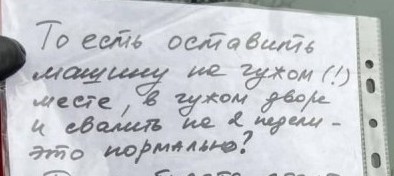 То есть оставить
машину на чужом (!)
месте, в чужом дворе
и свалить на 2 недели -
это нормально?